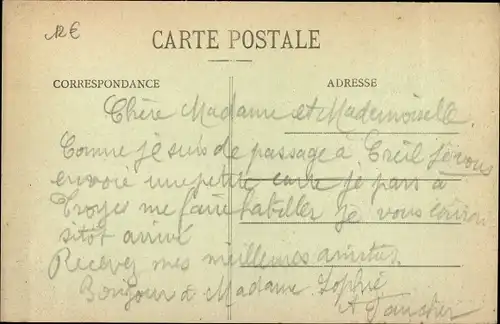 12 €
CARTE POSTALE
CORRESPONDANCE
ADRESSE
Chère Madame et Mademoiselle
Comme je suis de passage a Creil je vous
envoie une petite carte je pars a
Troyes me faire habiller je vous écrirai
sitôt arrivé
Recevez mes meilleures amitiés
Bonjour a Madame Sophie